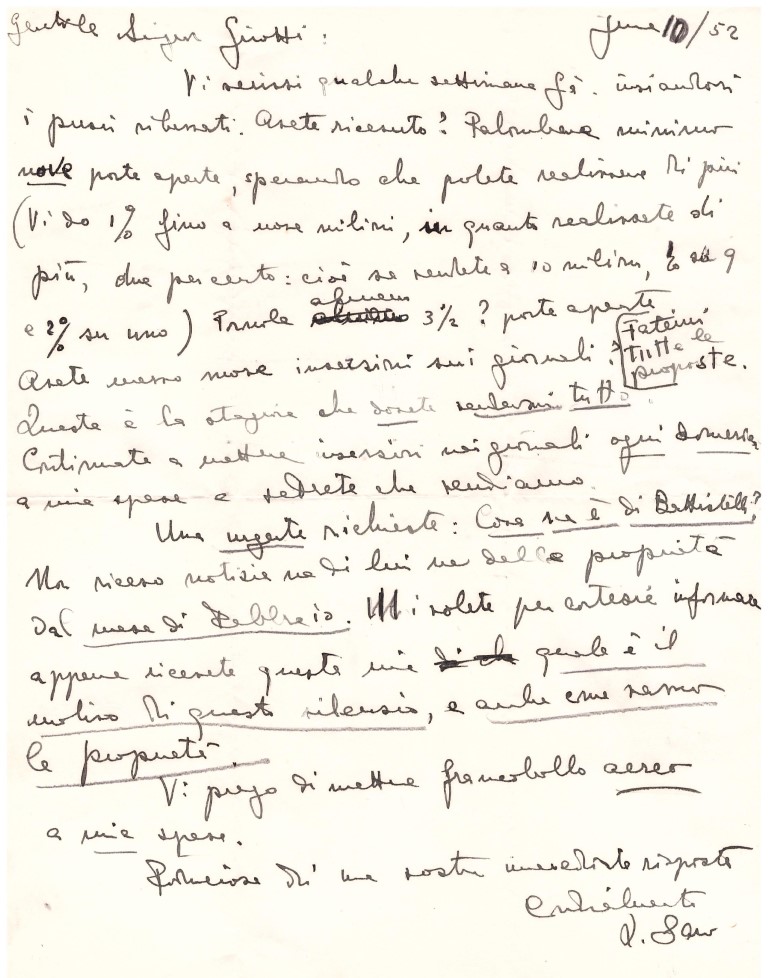 Gentile Signor Girotti: June 10/52
Vi scrissi qualche settimana fà. inviandovi
i prezzi ribassati. Avete ricevuto? Palombara minimo
nove porte aperte, sperando che potete realizzare di più
(Vi do 1% fino a nove milioni, in quanto realizzate di
più, due per cento: cioè se vendete a 10 milioni, su 9
e 2% su uno) almeno 3½? porte aperte
Avete messo nuove inserzioni sui giornali? Fatemi
tutte le
proposte.
Questa è la stagione che dovete vendermi tutto.
Continuate a mettere inserzioni nei giornali ogni domenica
a mie spese e vedrete che vendiamo.
Una urgente richiesta: Cosa ne è di Battistelli?
Non ricevo notizie ne di lui ne della proprietà
dal mese di Febbraio. Mi volete per cortesia informare
appena ricevete questa mia di che quale è il
motivo di questo silenzio, e anche come vanno
le proprietà.
Vi prego di mettere francobollo aereo
a mie spese.
di una vostra immediata risposta
Cordialmente